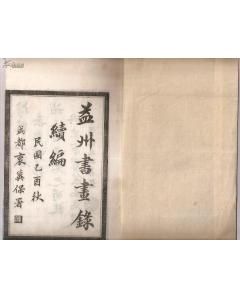 益州書畫錄
續編
民國乙酉秋
成都裵冀保署